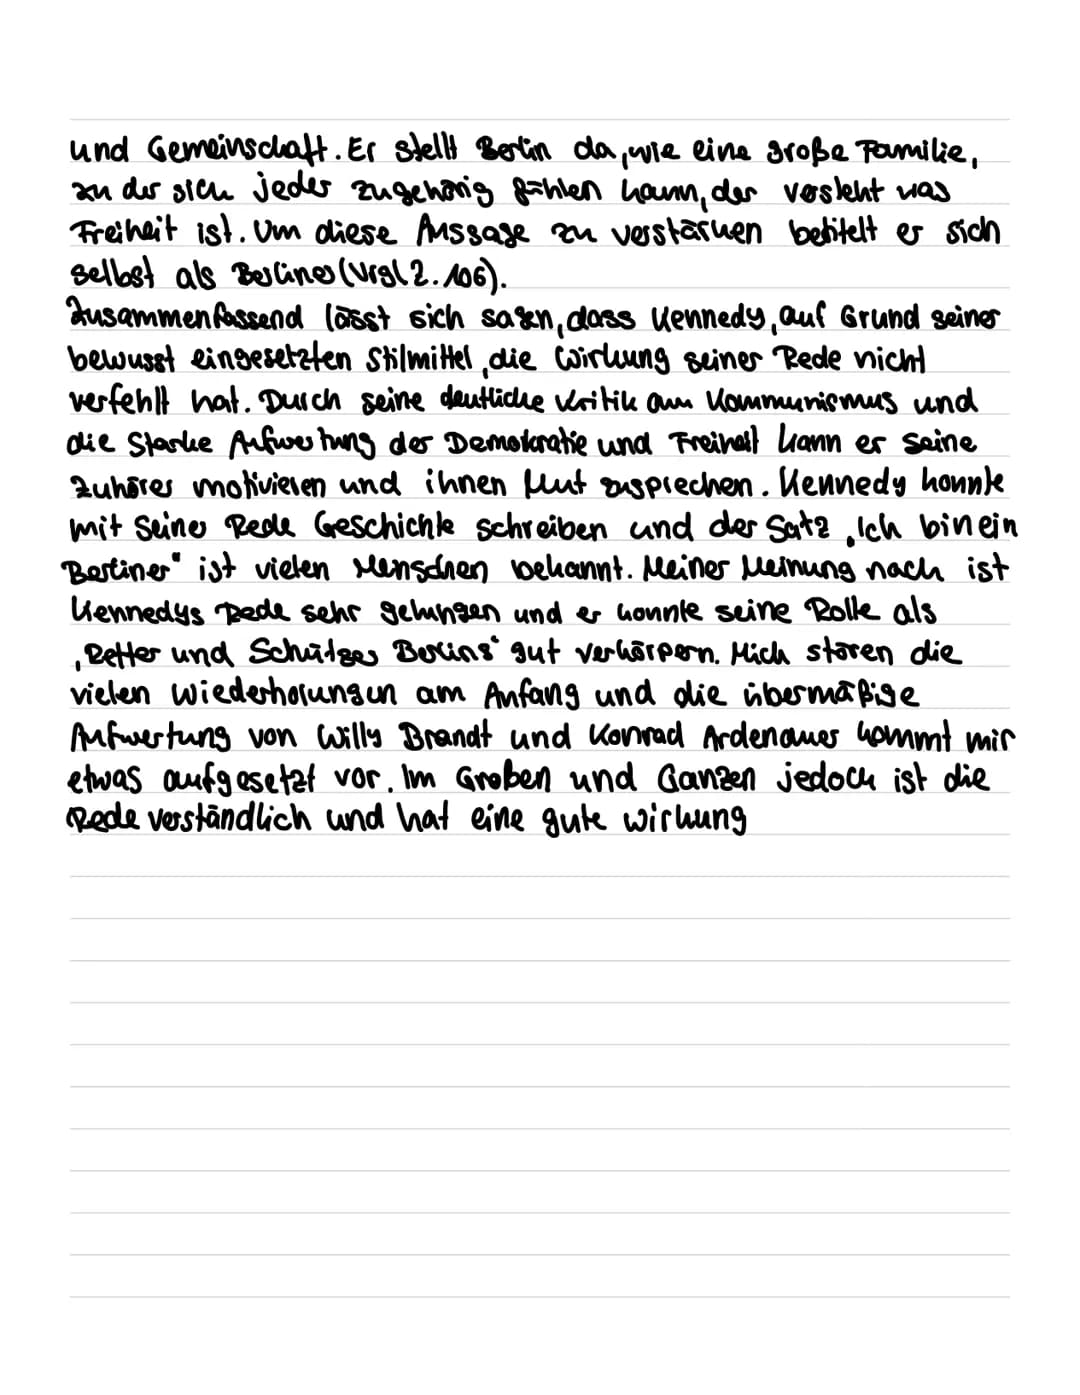 und Gemeinschaft. Er stellt Berlin da, wie eine große Familie,
zu der sich jeder zugehörig fühlen kann, der versteht was
Freiheit ist. Um diese Aussage zu verstärken betitelt er sich
selbst als Berliner (Vrgl. Z. 106).
Zusammenfassend lässt sich sagen, dass Kennedy, auf Grund seiner
bewusst eingesetzten Stilmittel, die Wirkung seiner Rede nicht
verfehlt hat. Durch seine deutliche Kritik am Kommunismus und
die Starke Aufwertung der Demokratie und Freiheit kann er seine
Zuhörer motivieren und ihnen Mut zusprechen. Kennedy konnte
mit Seiner Rede Geschichte schreiben und der Satz „Ich bin ein
Berliner" ist vielen Menschen bekannt. Meiner Meinung nach ist
Kennedys Rede sehr gelungen und er konnte seine Rolle als
‚Retter und Schützer Berlins' gut verkörpern. Mich stören die
vielen Wiederholungen am Anfang und die übermäßige
Aufwertung von Willy Brandt und Konrad Ardenauer kommt mir
etwas aufgesetzt vor. Im Groben und Ganzen jedoch ist die
Rede verständlich und hat eine gute wirkung